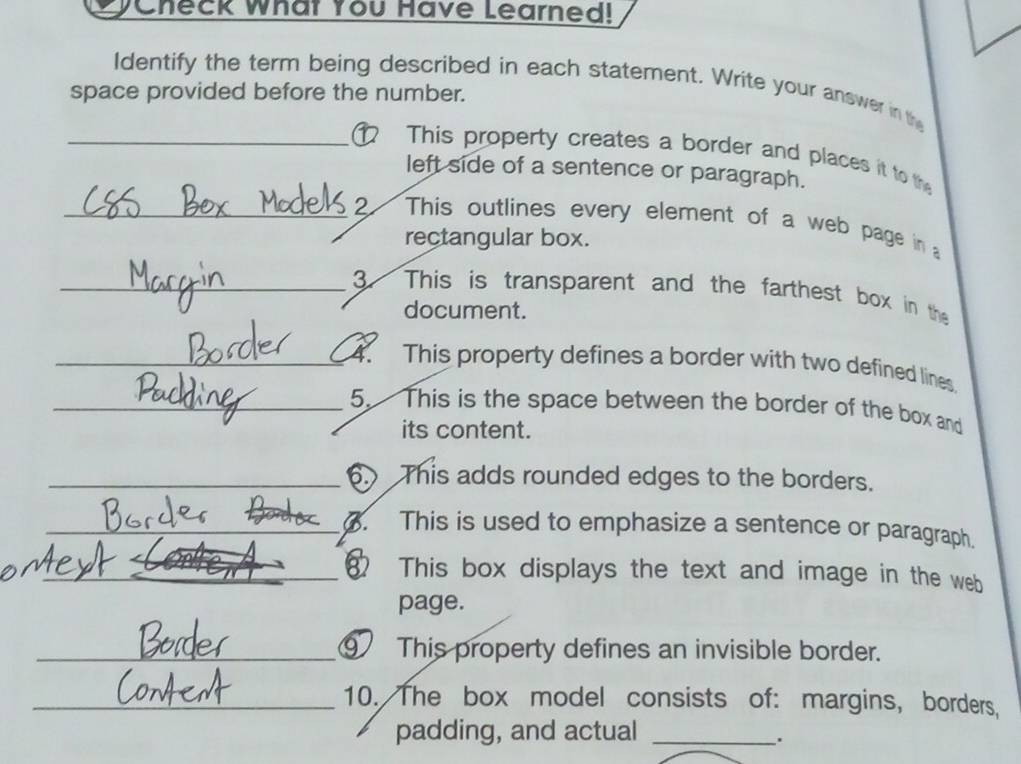 Check What You Have Learned!
Identify the term being described in each statement. Write your answer in the
space provided before the number.
1. This property creates a border and places it to the
left side of a sentence or paragraph.
CSS Box Models 2. This outlines every element of a web page in a
rectangular box.
Margin 3. This is transparent and the farthest box in the
document.
Border 4. This property defines a border with two defined lines.
Padding 5. This is the space between the border of the box and
its content.
6. This adds rounded edges to the borders.
Border Border 7. This is used to emphasize a sentence or paragraph.
ontext Content 8. This box displays the text and image in the web
page.
Border 9. This property defines an invisible border.
Content 10. The box model consists of: margins, borders,
padding, and actual ________.